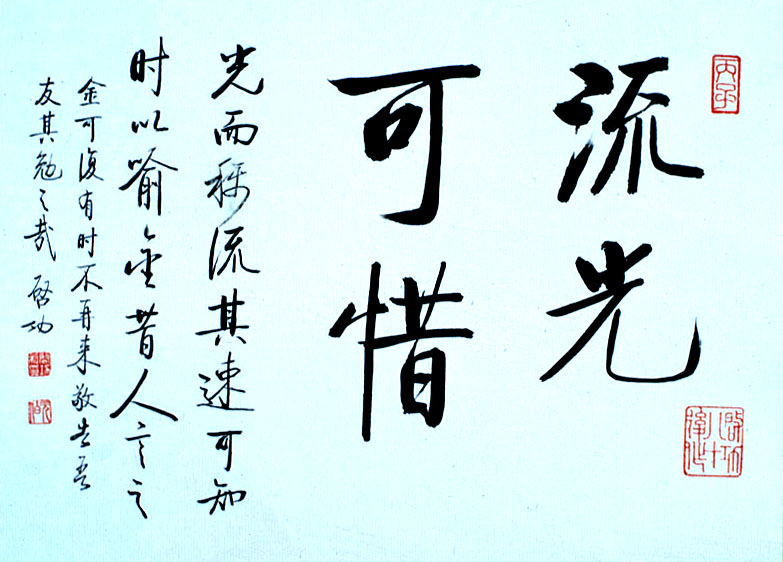 流光
可惜
光而称流其速可知
时以喻金昔人言之
金可復有时不再来敬告吾
友其勉之哉 启功